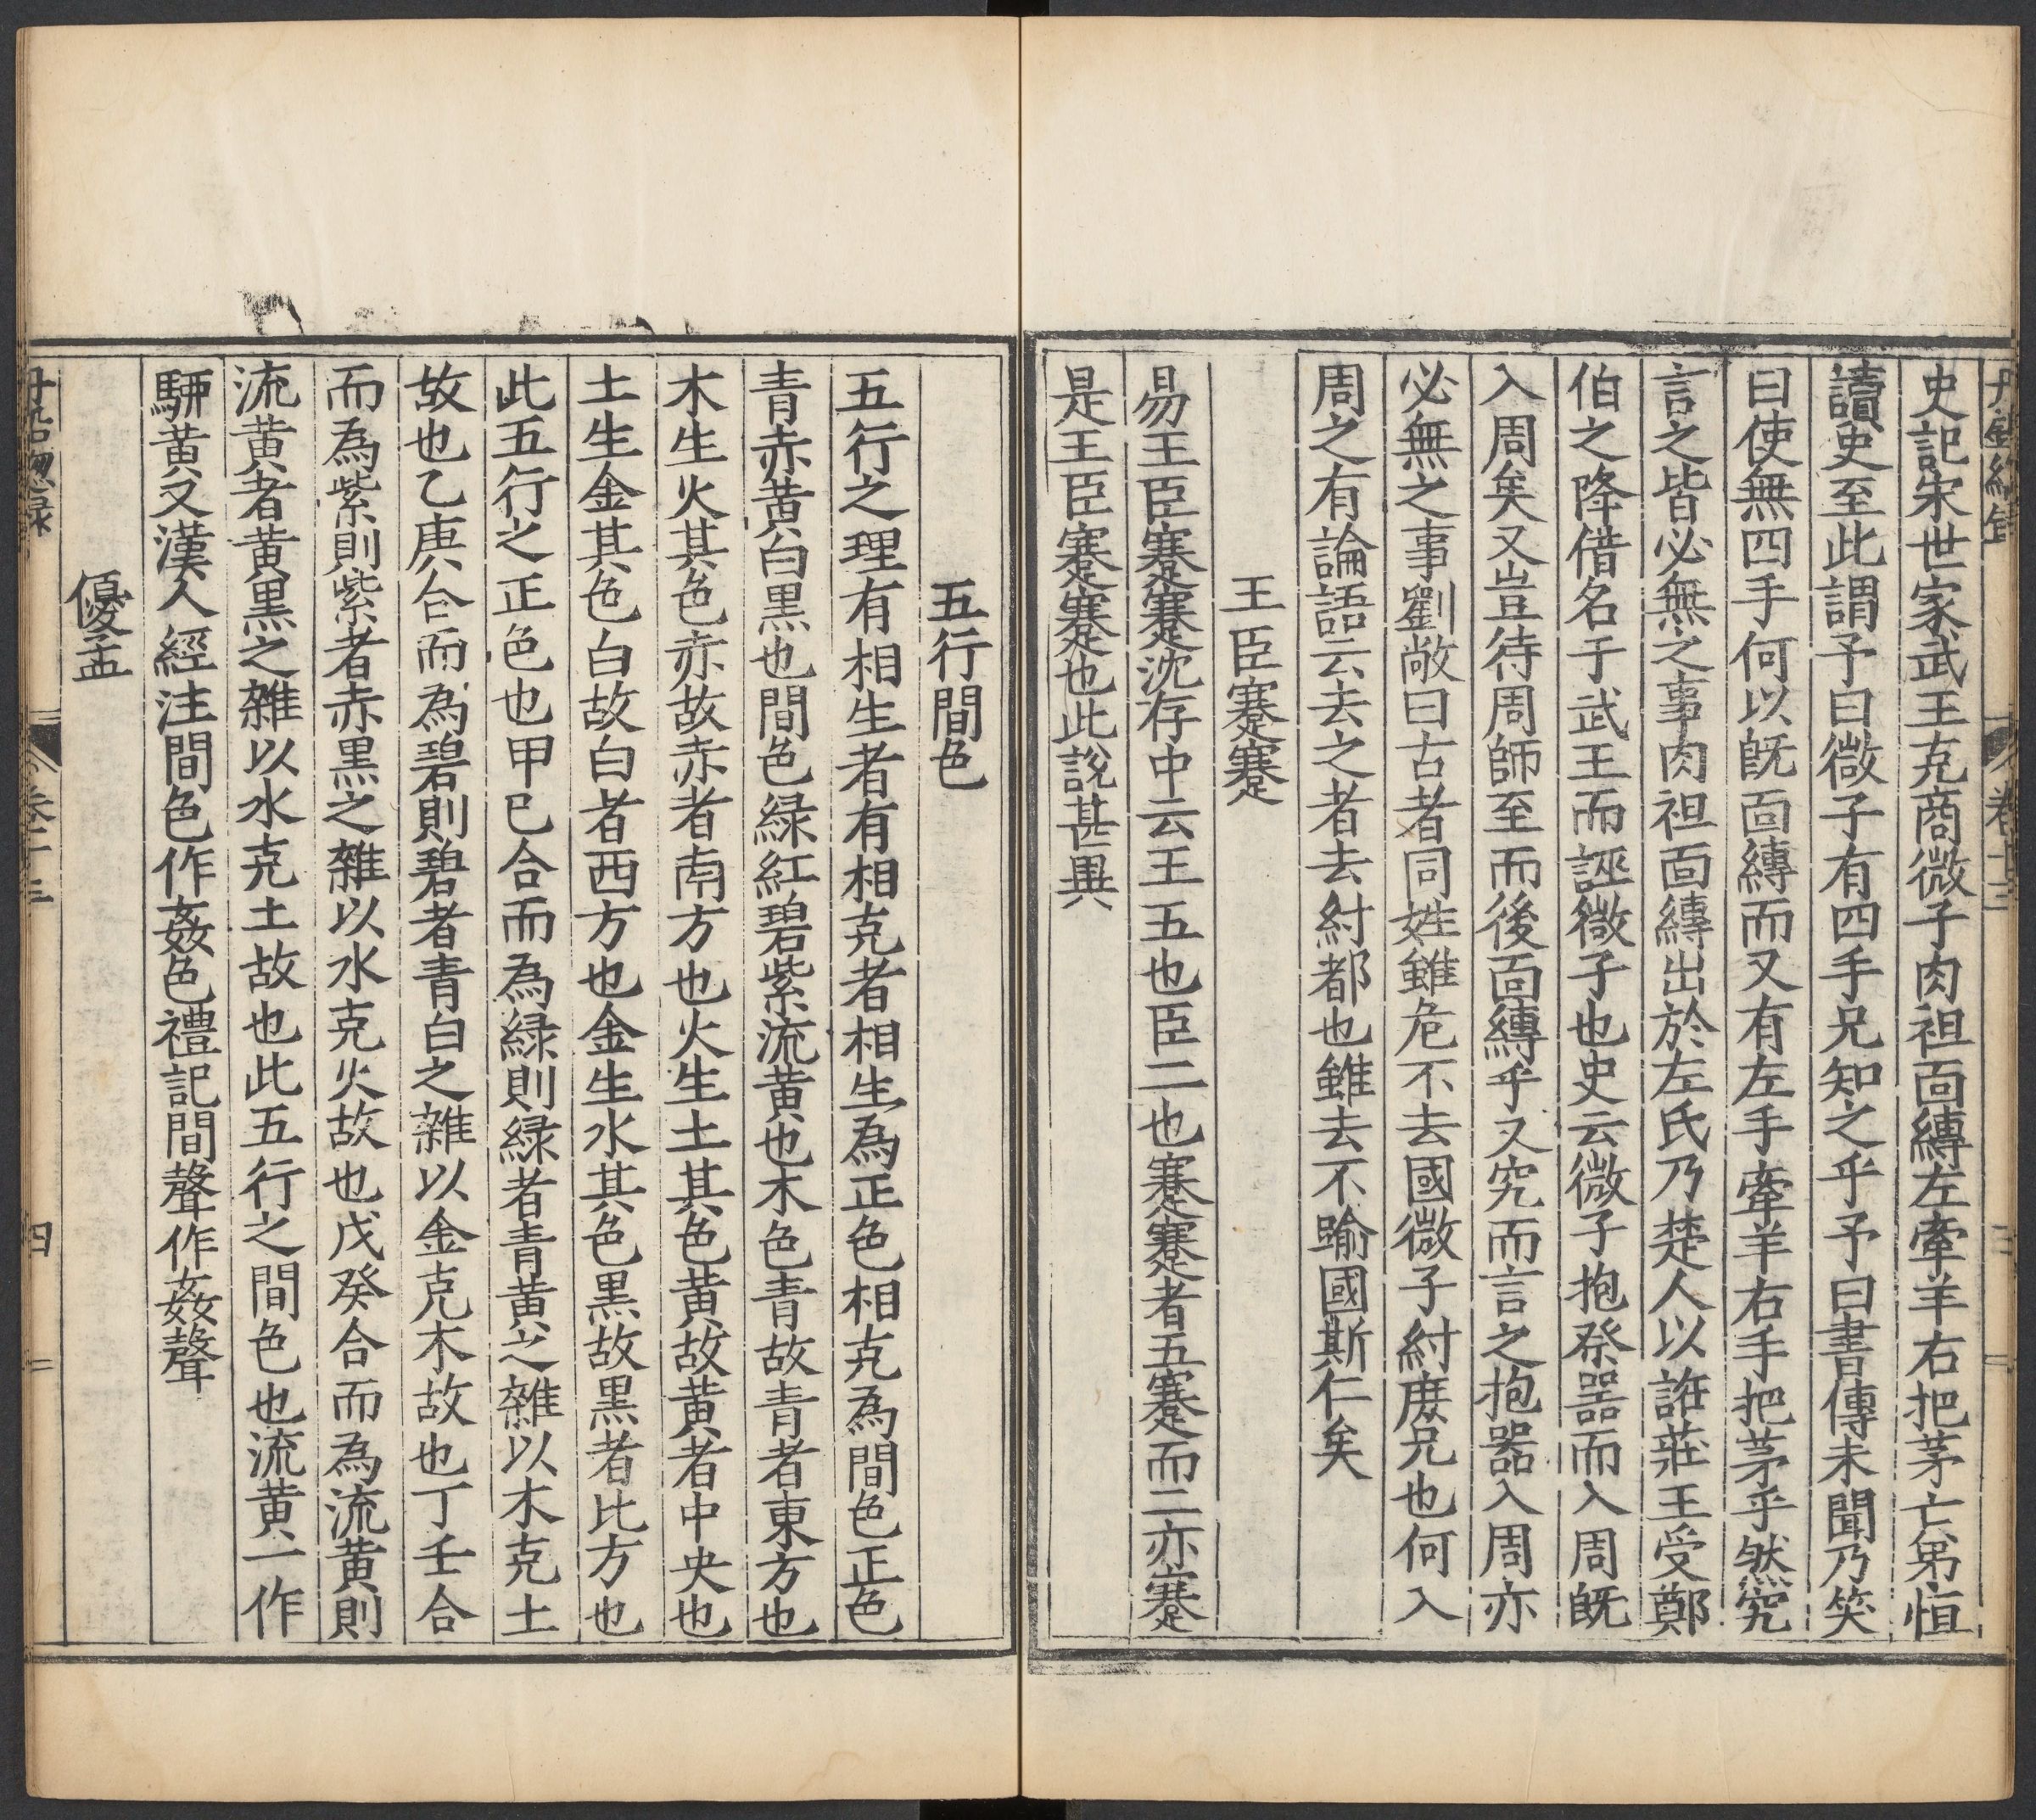 史記宋世家武王克商微子肉袒面縛左牽羊右把茅亡弟恒
讀史至此謂予曰微子有四手兄知之乎予曰書傳未聞乃笑
曰使無四手何以旣面縛而又有左手牽羊右手把茅乎然究
言之皆必無之事肉袒面縛出於左氏乃楚人以誑莊王受鄭
伯之降借名于武王而誣微子也史云微子抱祭器而入周旣
入周矣又豈待周師至而後面縛乎又究而言之抱器入周亦
必無之事劉敞曰古者同姓雖危不去國微子紂庻兄也何入
周之有論語云去之者去紂都也雖去不踰國斯仁矣
王臣蹇蹇
易王臣蹇蹇沈存中云王五也臣二也蹇蹇者五蹇而二亦蹇
是王臣蹇蹇也此說甚異
五行間色
五行之理有相生者有相克者相生為正色相克為間色正色
青赤黃白黒也間色緑紅碧紫流黃也木色青故青者東方也
木生火其色赤故赤者南方也火生土其色黃故黃者中央也
土生金其色白故白者西方也金生水其色黒故黒者比方也
此五行之正色也甲巳合而為緑則緑者青黃之雜以木克土
故也乙庚合而為碧則碧者青白之雜以金克木故也丁壬合
而為紫則紫者赤黒之雜以水克火故也戊癸合而為流黃則
流黃者黃黒之雜以水克土故也此五行之間色也流黃一作
駵黃又漢人經注間色作姦色禮記間聲作姦聲
優孟
卷二三
四